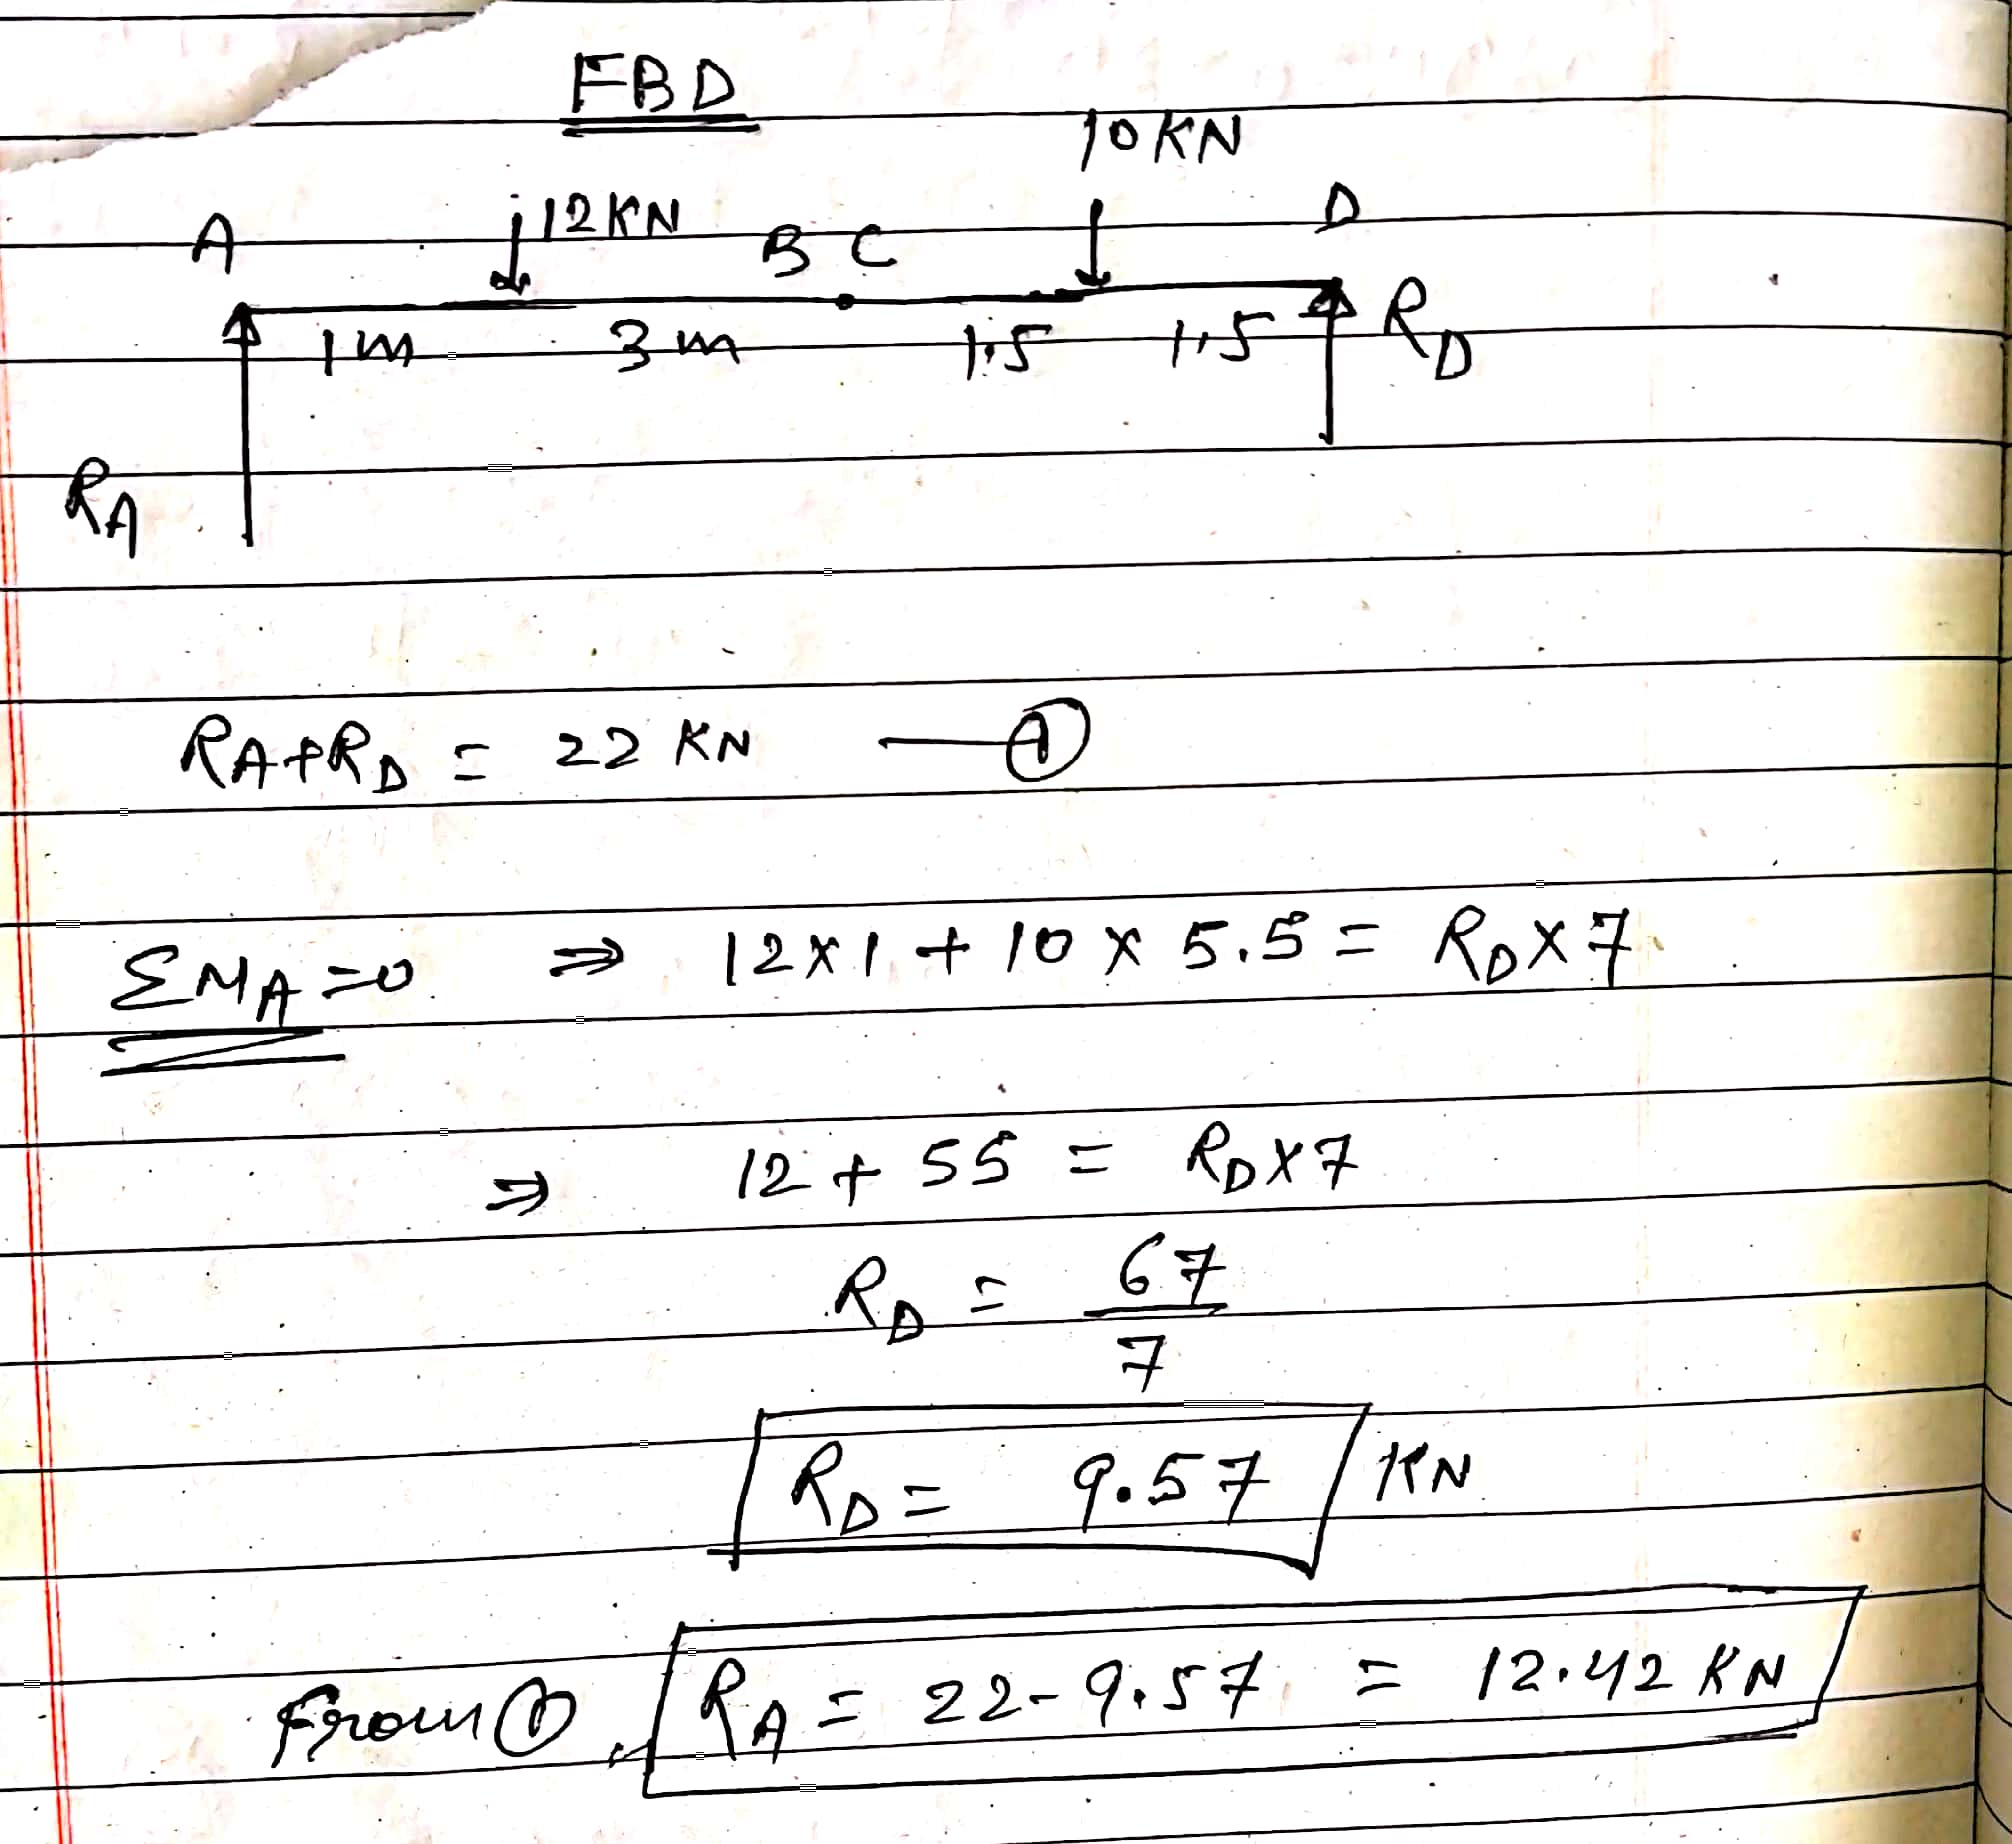 FBD
10KN
A 12KN B C D
1m 3m 1.5 1.5 RD
RA
RA+RD = 22 KN — ①
ΣMA=0 ⇒ 12×1 + 10 × 5.5 = RD×7
⇒ 12 + 55 = RD×7
RD = 67
7
RD = 9.57 KN
From ① RA = 22-9.57 = 12.42 KN